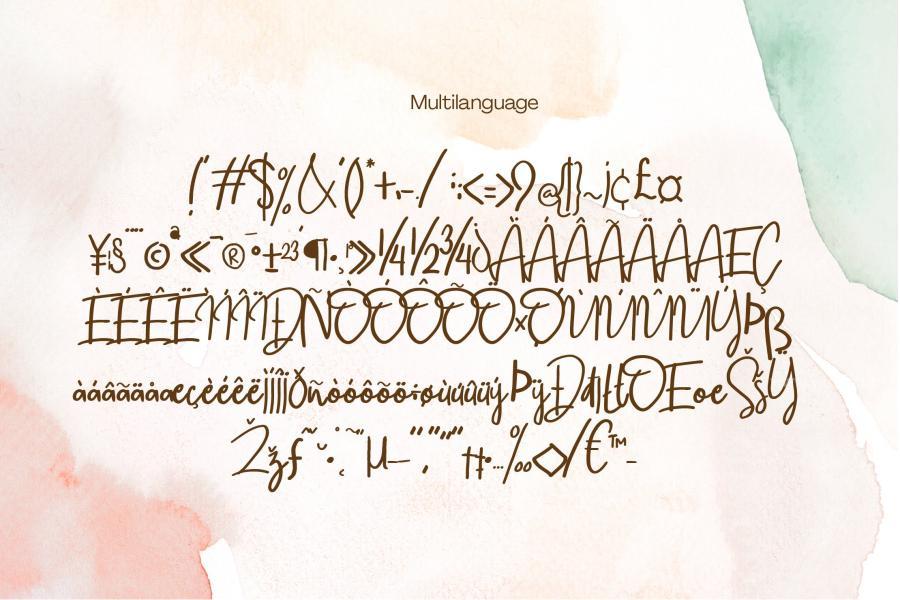 Multilanguage
! " # $ % & ' ( ) * + , - . / : ; < = > ? @ [ ] { } ~ ¡ ¢ £ ¤
¥ ¦ § ¨ © ª « ¬ ® ¯ ° ± ² ³ ´ ¶ · ¸ ¹ º » ¼ ½ ¾ ¿ À Á Â Ã Ä Å Æ Ç
È É Ê Ë Ì Í Î Ï Ð Ñ Ò Ó Ô Õ Ö × Ø Ù Ú Û Ü Ý Þ ß
à á â ã ä å æ ç è é ê ë ì í î ï ð ñ ò ó ô õ ö ÷ ø ù ú û ü ý þ ÿ Đ đ ı Ł ł Œ œ Š š Ÿ
Ž ž ƒ ˆ ˇ ˘ ˙ ˚ ˛ ˜ ˝ µ – ‘ ’ ‚ “ ” „ † ‡ • … ‰ ‹ › ⁄ € ™ −